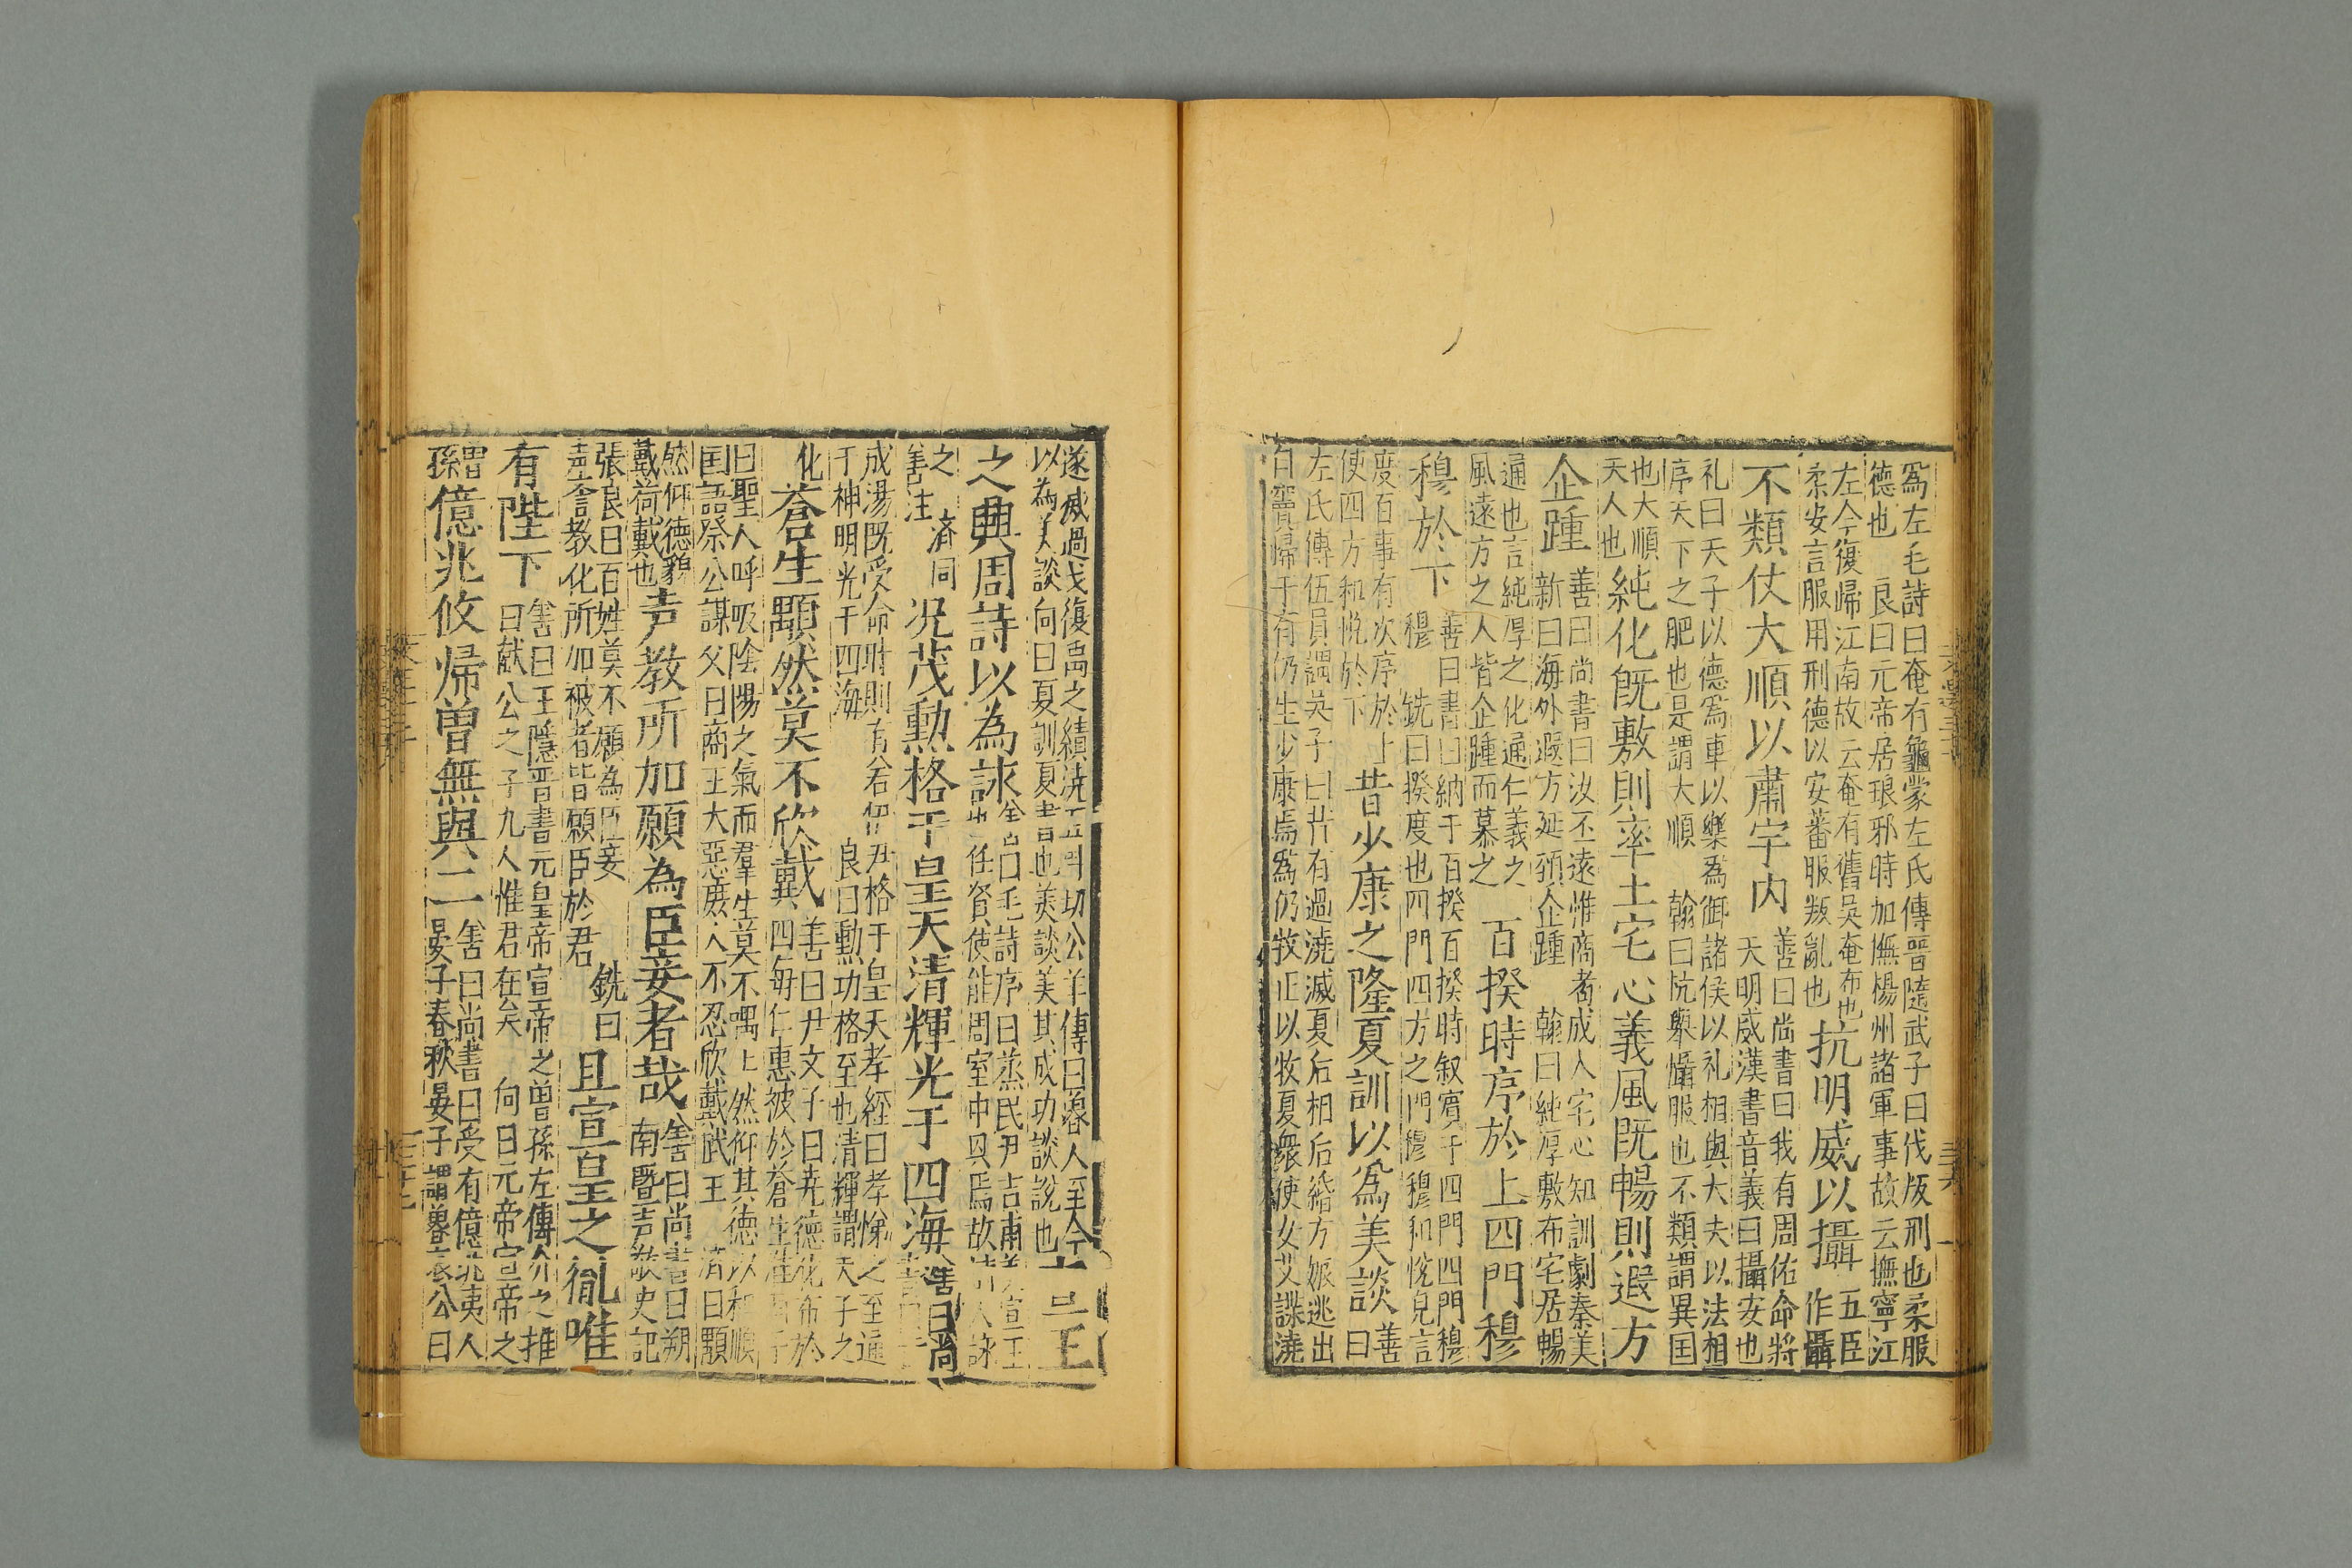 為左毛詩曰奄有龜蒙左氏傳晉隨武子曰伐叛刑也柔服
德也 良曰元帝居琅邪時加撫楊州諸軍事故云撫寧江
左今復歸江南故云奄有舊吳奄布也 抗明威以攝 五臣
柔安言服用刑德以安蕃服叛亂也 作𢥏
不類仗大順以肅宇內 善曰尚書曰我有周佑命將
天明威漢書音義曰攝安也
礼曰天子以德為車以樂為御諸侯以礼相與大夫以法相
序天下之肥也是謂大順 翰曰抗舉懾服也不類謂異国
也大順
天人也 純化旣敷則率土宅心義風旣暢則遐方
企踵 善曰尚書曰汝丕遠惟商耉成人宅心知訓劇秦美
新曰海外遐方延頚企踵 翰曰純厚敷布宅居暢
通也言純厚之化通仁義之
風遠方之人皆企踵而慕之 百揆時序於上四門穆
穆於下 善曰書曰納于百揆百揆時叙賓于四門四門穆
穆 銑曰揆度也四門四方之門穆穆和悅皃言
度百事有次序於上
使四方和悅於下 昔少康之隆夏訓以為美談 善
曰
左氏傳伍員謂吳子曰昔有過澆滅夏后相后緡方娠逃出
自竇帰于有仍生少康焉為仍牧正以收夏衆使女艾諜澆
遂滅過戈復禹之績澆五叫切公羊傳曰魯人至今
以為美談 向曰夏訓夏書也美談美其成功談說也 宣王
之興周詩以為詠 善曰毛詩序曰蒸民尹吉甫美宣王
也任賢使能周室中興焉故詩人詠
之 濟同
善注 况茂勲格于皇天清輝光于四海 善曰尚
書曰
成湯旣受命時則有若伊尹格于皇天孝經曰孝悌之至通
于神明光于四海 良曰勲功格至也清輝謂天子之
化 蒼生顒然莫不欣戴 善曰尹文子曰尭德化布於
四海仁惠被於蒼生
曰聖人呼吸陰陽之氣而羣生莫不喁上然仰其德以和順
国語祭公謀父曰商王大惡庶人不忍欣戴武王 濟曰顒
然仰德貌
戴荷戴也 声教所加願為臣妾者哉 善曰尚書曰朔
南曁声敎史記
張良曰百姓莫不願為臣妾 銑曰
声言教化所加被者皆願臣於君 且宣皇之胤唯
有陛下 善曰王隱晉書元皇帝宣帝之曽孫左傳介之推
曰献公之子九人惟君在矣 向曰元帝宣帝之
曽
孫 億兆攸帰曽無與二 善曰尚書曰受有億兆夷人
晏子春秋晏子謂魯哀公曰